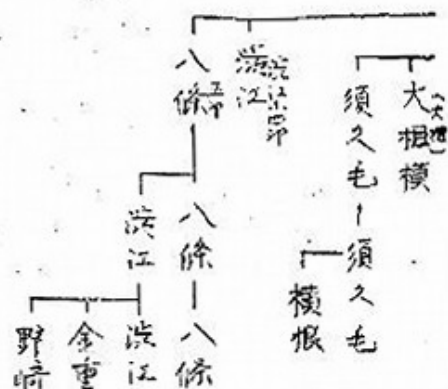 大相模
須久毛
須久毛
横根
渋江
八條
八條
八條
渋江
渋江
金重
野崎